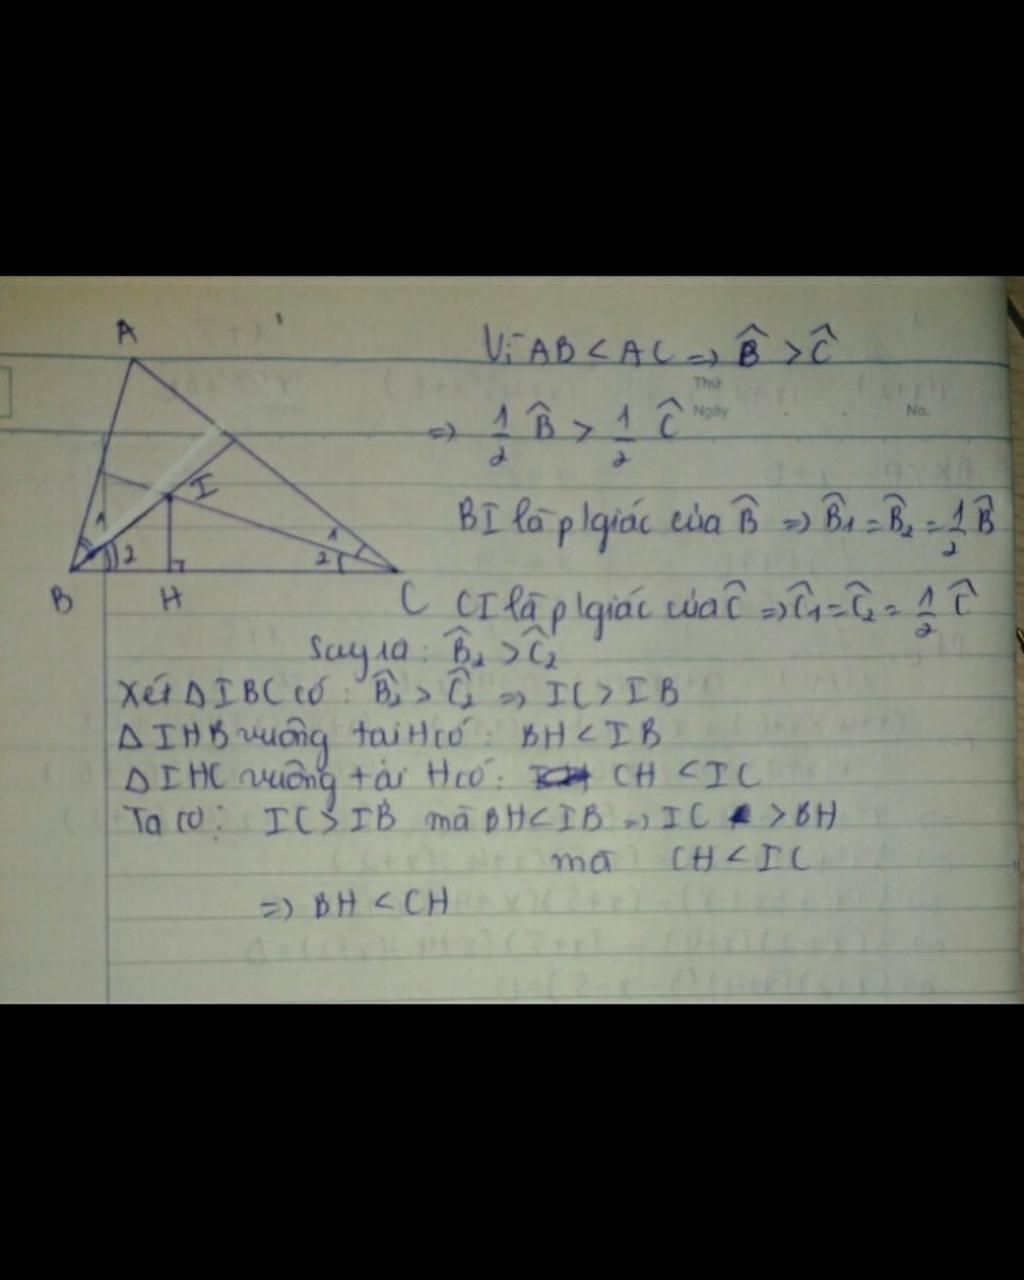 A
Vì AB < AC => B̂ > Ĉ
Thứ
Ngày
No.
=> 1/2 B̂ > 1/2 Ĉ
I
1
2
1
2
B
H
C
BI là p/giác của B̂ => B̂1 = B̂2 = 1/2 B̂
CI là p/giác của Ĉ => Ĉ1 = Ĉ2 = 1/2 Ĉ
Suy ra : B̂2 > Ĉ2
Xét Δ IBC có : B̂2 > Ĉ2 => IC > IB
Δ IHB vuông tại H có : BH < IB
Δ IHC vuông tại H có : CH < IC
Ta có : IC > IB mà BH < IB => IC > BH
mà CH < IC
=> BH < CH